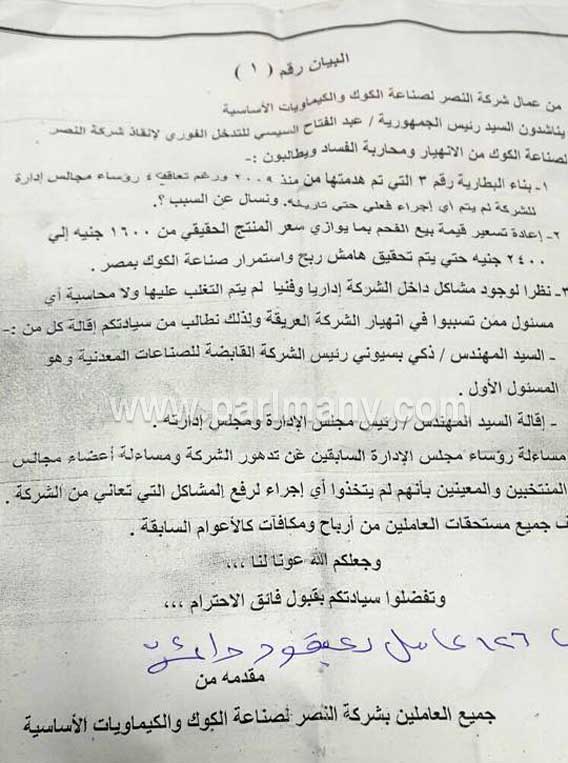 البيان رقم ( ١ )
من عمال شركة النصر لصناعة الكوك والكيماويات الأساسية
يناشدون السيد رئيس الجمهورية / عبد الفتاح السيسي للتدخل الفوري لإنقاذ شركة النصر
لصناعة الكوك من الانهيار ومحاربة الفساد ويطالبون :-
١- بناء البطارية رقم ٣ التي تم هدمتها من منذ ٢٠٠٩ ورغم تعاقب ٤ رؤساء مجالس إدارة
للشركة لم يتم أي إجراء فعلي حتي تاريخه. ونسال عن السبب ؟.
٢- إعادة تسعير قيمة بيع الفحم بما يوازي سعر المنتج الحقيقي من ١٦٠٠ جنيه إلي
٢٤٠٠ جنيه حتي يتم تحقيق هامش ربح واستمرار صناعة الكوك بمصر .
٣- نظرا لوجود مشاكل داخل الشركة إداريا وفنيا لم يتم التغلب عليها ولا محاسبة أي
مسئول ممن تسببوا في انهيار الشركة العريقة ولذلك نطالب من سيادتكم إقالة كل من :-
- السيد المهندس / ذكي بسيوني رئيس الشركة القابضة للصناعات المعدنية وهو
المسئول الأول .
www.parlmany.com
- إقالة السيد المهندس / رئيس مجلس الإدارة ومجلس إدارته .
مساءلة رؤساء مجلس الإدارة السابقين عن تدهور الشركة ومساءلة أعضاء مجالس
المنتخبين والمعينين بأنهم لم يتخذوا أي إجراء لرفع المشاكل التي تعاني من الشركة .
ف جميع مستحقات العاملين من أرباح ومكافآت كالأعوام السابقة .
وجعلكم الله عونا لنا ،،،
وتفضلوا سيادتكم بقبول فائق الاحترام ،،،
١٢٦ عامل بعقود
مقدمه من
جميع العاملين بشركة النصر لصناعة الكوك والكيماويات الأساسية